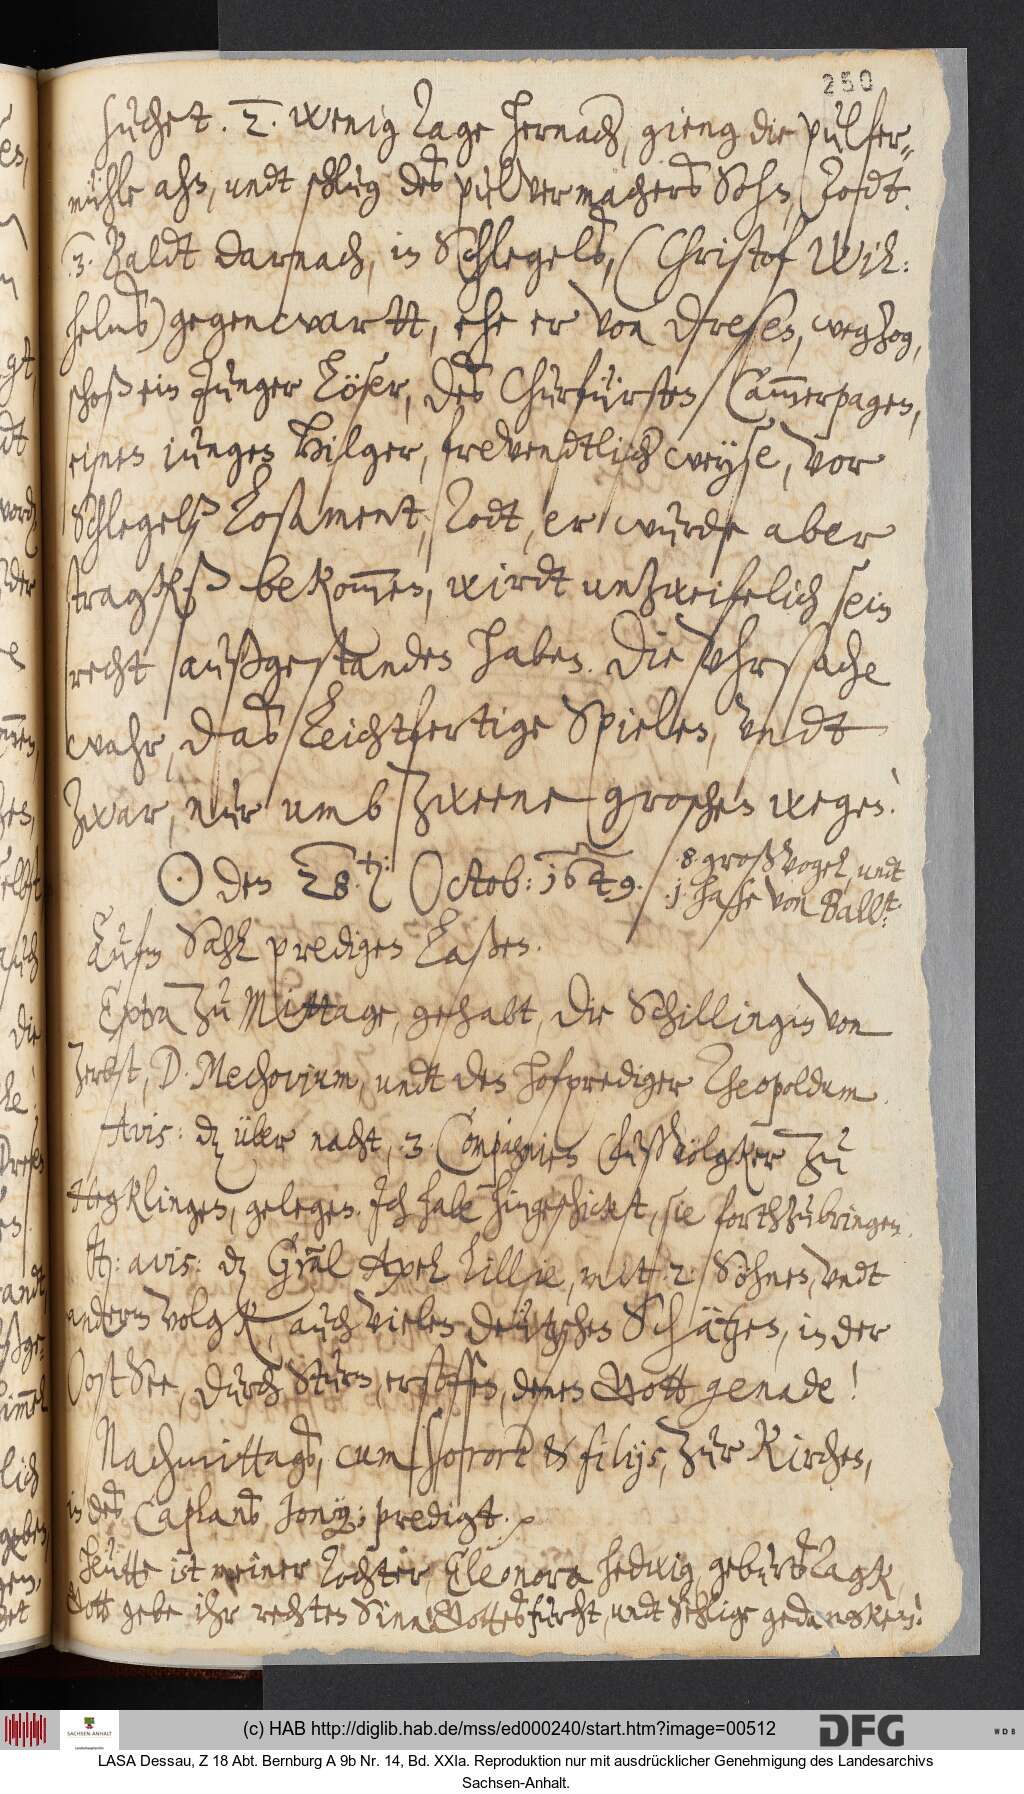 250
suchet. 2. wenig Tage hernach, gieng die pulfer„
mühle ahn, undt schlug des pulvermachers Sohn, Todt.
3. Baldt darnach, in Schlegels, (Christof Wil:
helms) gegenwartt, ehe er von Dresen, wegzog,
schoß ein Junger Löser, des Churfürsten Cammerpagen,
einen iungen Hilger, frevendtlich weyse, vor
Schlegelß Losament, Todt, er wurde aber
stragkß bekommen, wirdt unzweifelich sein
recht außgestanden haben. Die Uhrsache
wahr, das Leichtfertige Spielen, undt
zwar, nur umb zweene groschen wegen!
⊙ den 28.ten: October: 1649.
8 großvogel, undt
1 hase von Ballst:
Aufm Sahl predigen Laßen.
Extra zu Mittage, gehabt, die Schillingin von
Zerbst, D. Mechovium, undt den hofprediger Theopoldum.
Avis: dz über nacht, 3. Compagnien Fußvölgker zu
Hegklingen, gelegen. Ich habe hingeschickt, sie forthzubringen.
Jtt: avis: dz Gral Axel Lillie, mit 2 Söhnen, undt
andern volgk, auch vielen deützschen Schätzen, in der
Oost See, durch Sturm, ersoffen, denen Gott genade!
Nachmittags, cum sorore et filijs, zur Kirchen,
in des Caplans Jonij; predigt.
Heütte ist meiner Tochter, Eleonora Hedwig geburtsTagk,
Gott gebe ihr rechten Sinn, Gottesfurcht, undt Sehlige gedancken!
SACHSEN-ANHALT
(c) HAB http://diglib.hab.de/mss/ed000240/start.htm?image=00512
DFG
WDB
LASA Dessau, Z 18 Abt. Bernburg A 9b Nr. 14, Bd. XXIa. Reproduktion nur mit ausdrücklicher Genehmigung des Landesarchivs
Sachsen-Anhalt.